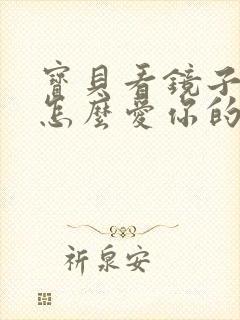 寶貝看鏡子
怎麼愛你的
祈泉安